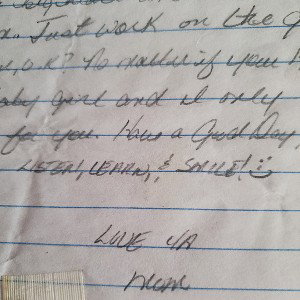 n. Just work on the
n, o.k? No matter if your
aby girl and I only
for you. Have a Good Day,
LISTEN!, LEARN, & SMILE!
LOVE YA
MOM